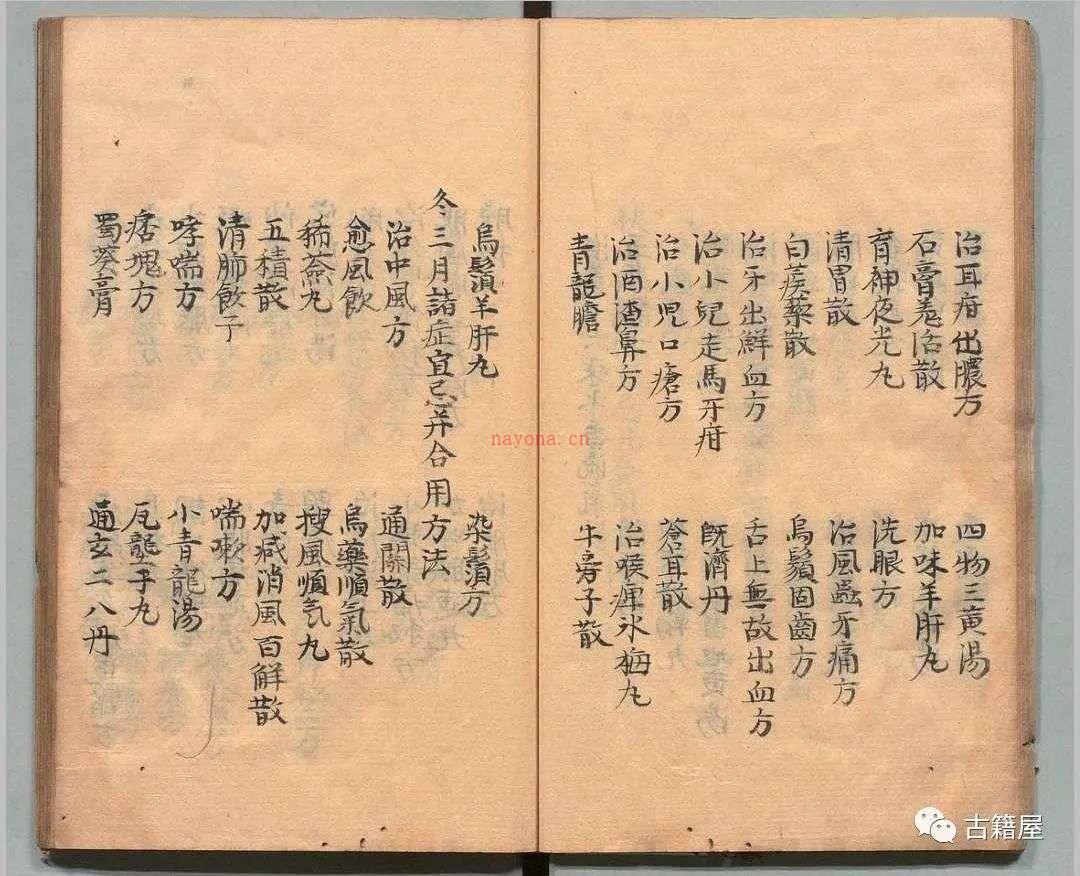 治耳疳出膿方 四物三黄湯
石膏羗活散 加味羊肝丸
育神夜光丸 洗眼方
清胃散 治風蟲牙痛方
白蒺藜散 烏鬚固齒方
治牙出鮮血方 舌上無故出血方
治小兒走馬牙疳 既濟丹
治小児口瘡方 蒼耳散
治酒渣鼻方 治喉痺氷梅丸
青龍膽 牛旁子散
烏鬚羊肝丸 染鬚方
冬三月諸症宜忌并合用方法
治中風方 通關散
愈風飲 烏藥順氣散
稀薟丸 搜風順氣丸
五積散 加減消風百解散
清肺飲子 喘嗽方
哮喘方 小青龍湯
痞塊方 瓦壟子丸
蜀葵膏 通玄二八丹
nayona.cn
古籍屋